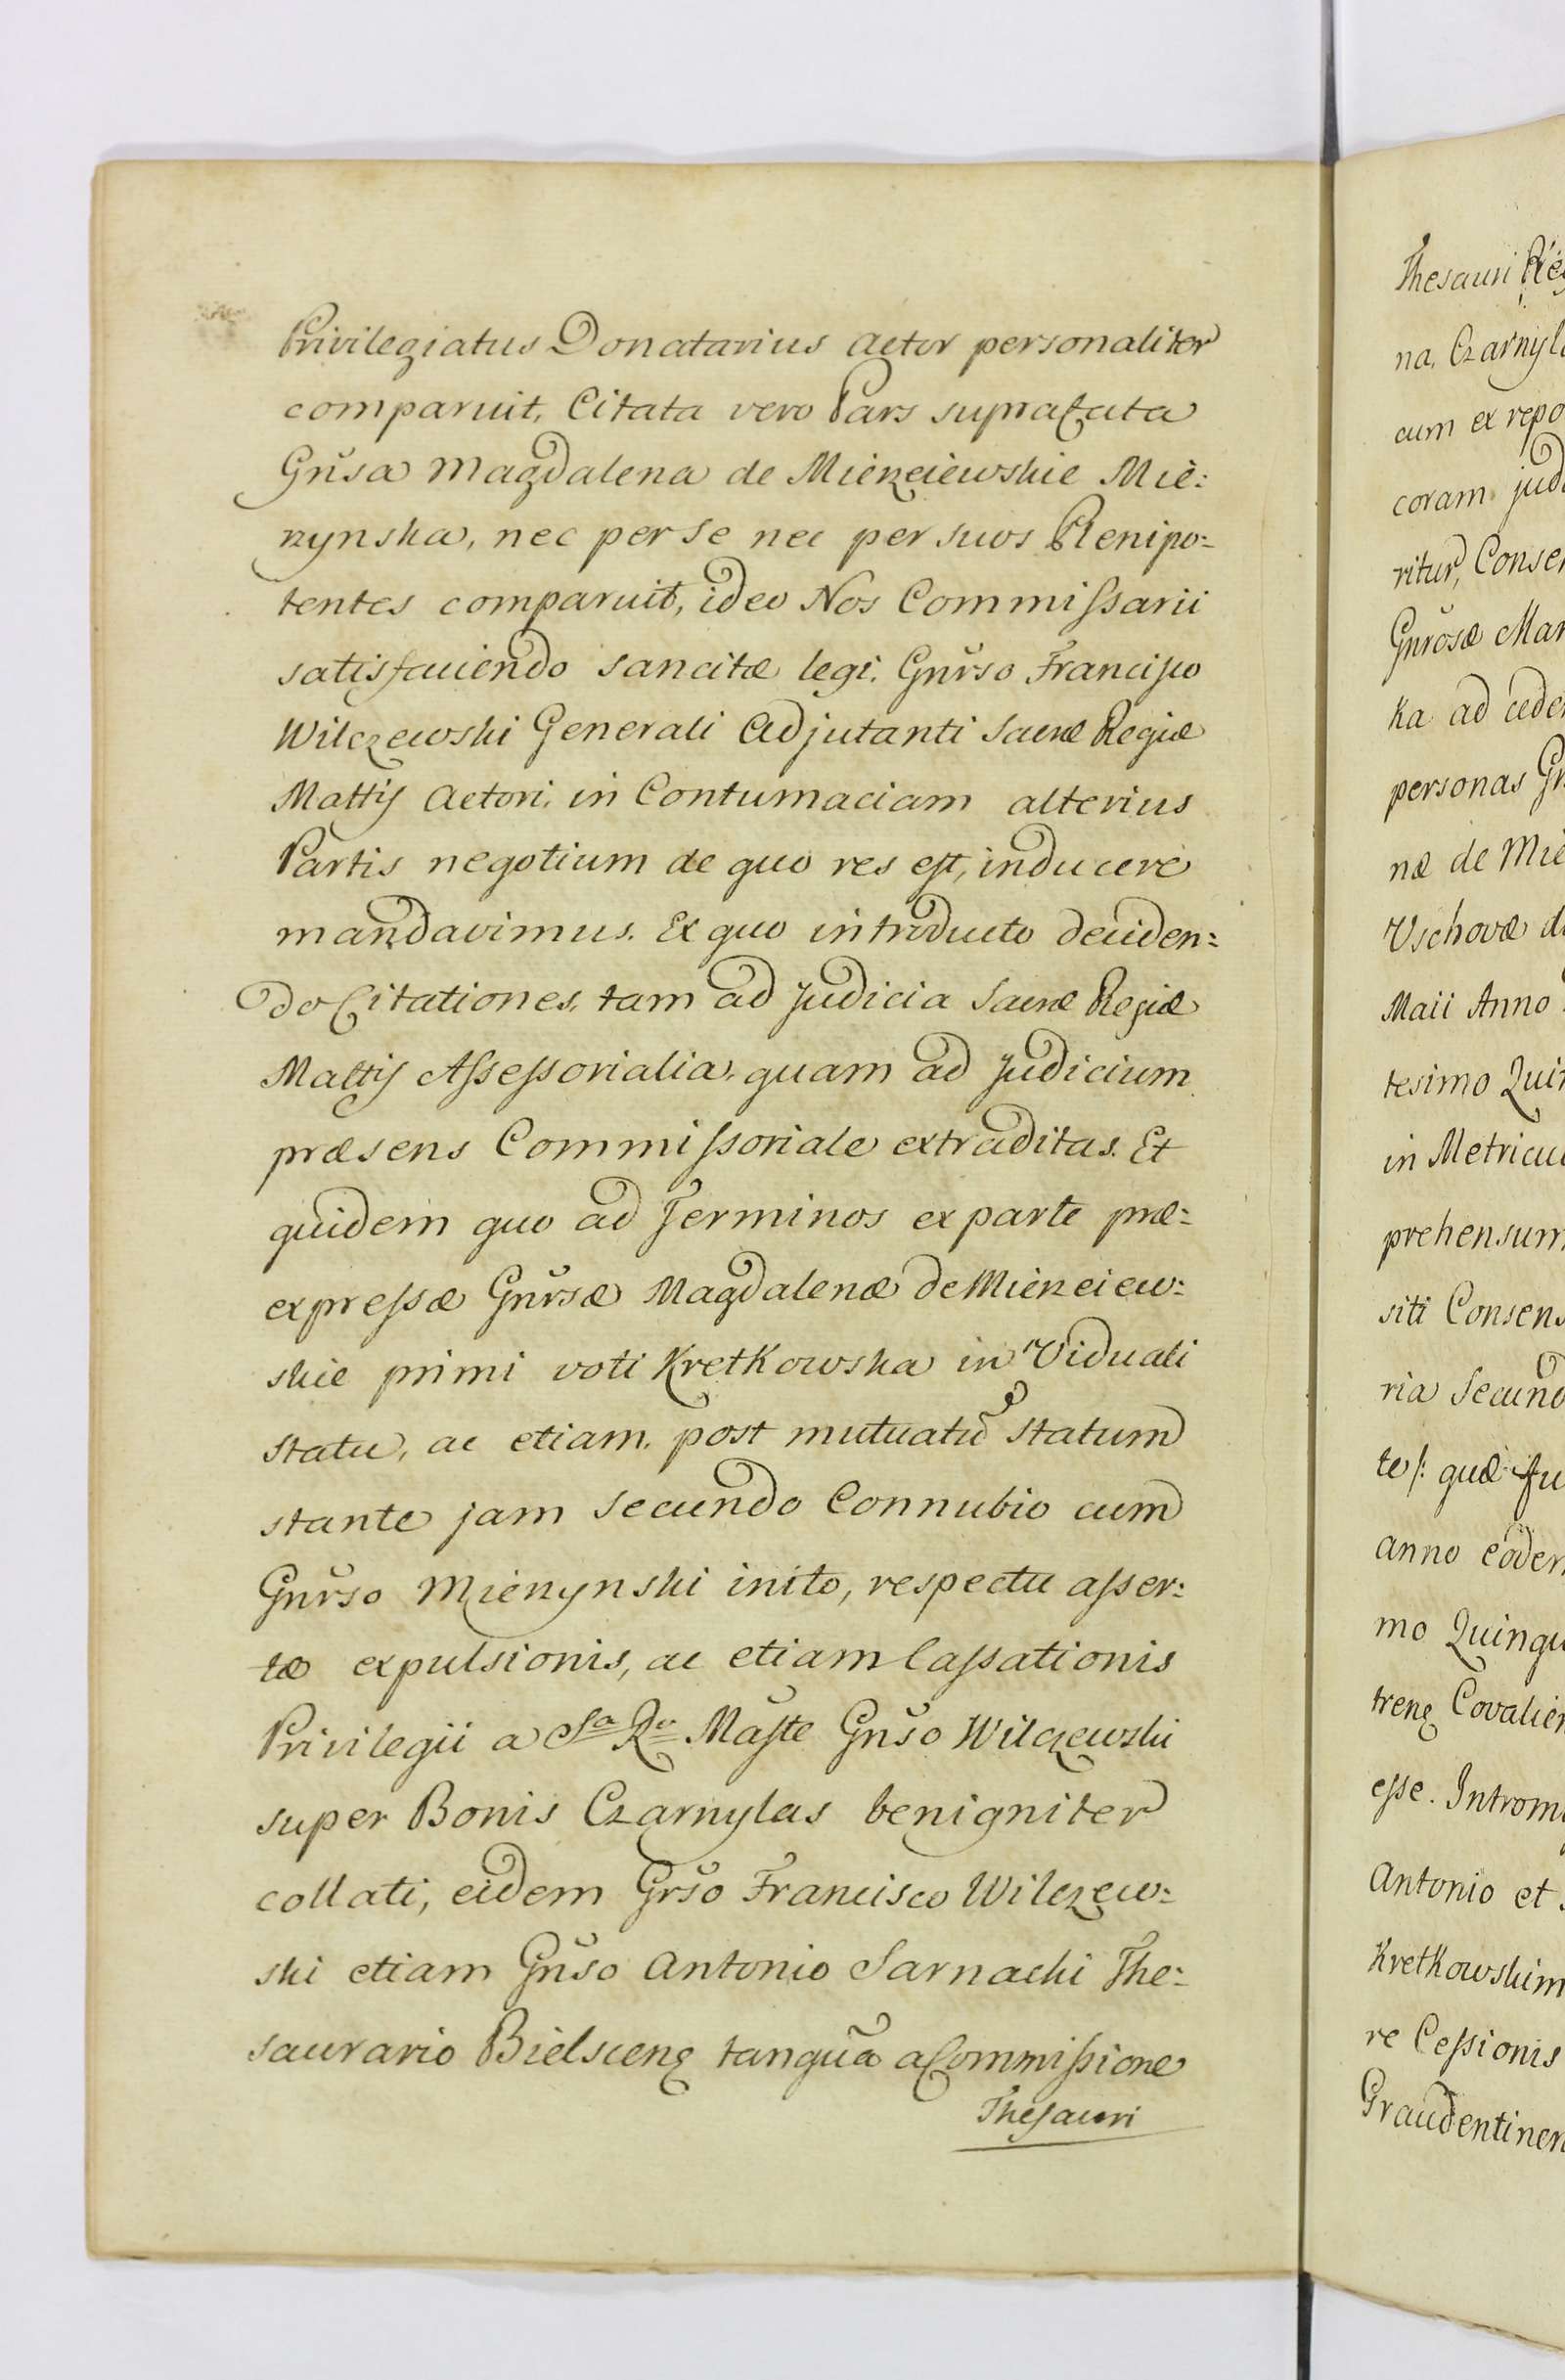 Privilegiatus Donatarius Actor personaliter
comparuit, Citata vero Pars suprafata
Gn̆sa Magdalena de Mierzeiewskie Mie:
rzynska, nec per se nec per suos Plenipo:
tentes comparuit, ideo Nos Commißarii
satisfaciendo sancitæ legi. Gnr̆so Francisco
Wilczewski Generali Adjutanti Sacræ Regiæ
Mattis Actori, in Contumaciam alterius
Partis negotium de quo res est, inducere
mandavimus. Ex quo introducto deciden:
do Citationes, tam ad Judicia Sacræ Regiæ
Mattis Aßeßorialia, quam ad Judicium
præsens Commißoriale extraditas. Et
quidem quo ad Terminos ex parte præ:
expreßæ Gnr̆sæ Magdalenæ de Mierzeiew:
skie primi voti Kretkowska in Viduali
statu, ac etiam post mutuatū statum
stante jam secundo Connubio cum
Gnr̆so Mierzynski inito, respectu aßer:
tæ expulsionis, ac etiam Caßationis
Privilegii a Sa Ra Maste Gn̆so Wilczewski
super Bonis Czarnylas benigniter
collati, eidem Gr̆so Francisco Wilczew:
ski etiam Gn̆so Antonio Sarnacki The:
saurario Bielscenę tanquā a Commißione
Thesauri
Thesauri
na, Czarnyl
cum ex repo
coram jud
ritur, Conse
Gnrŏsæ Mar
ka ad cede
personas G
næ de Mie
Vschovæ d
Maii Anno
tesimo Qui
in Metricu
prehensum
siti Consens
ria Secund
te/: quæ fu
anno eodem
mo Quinqu
trenę Covalien
eße. Introm
Antonio et
Kretkowskim
re Ceßionis
Graudentinen